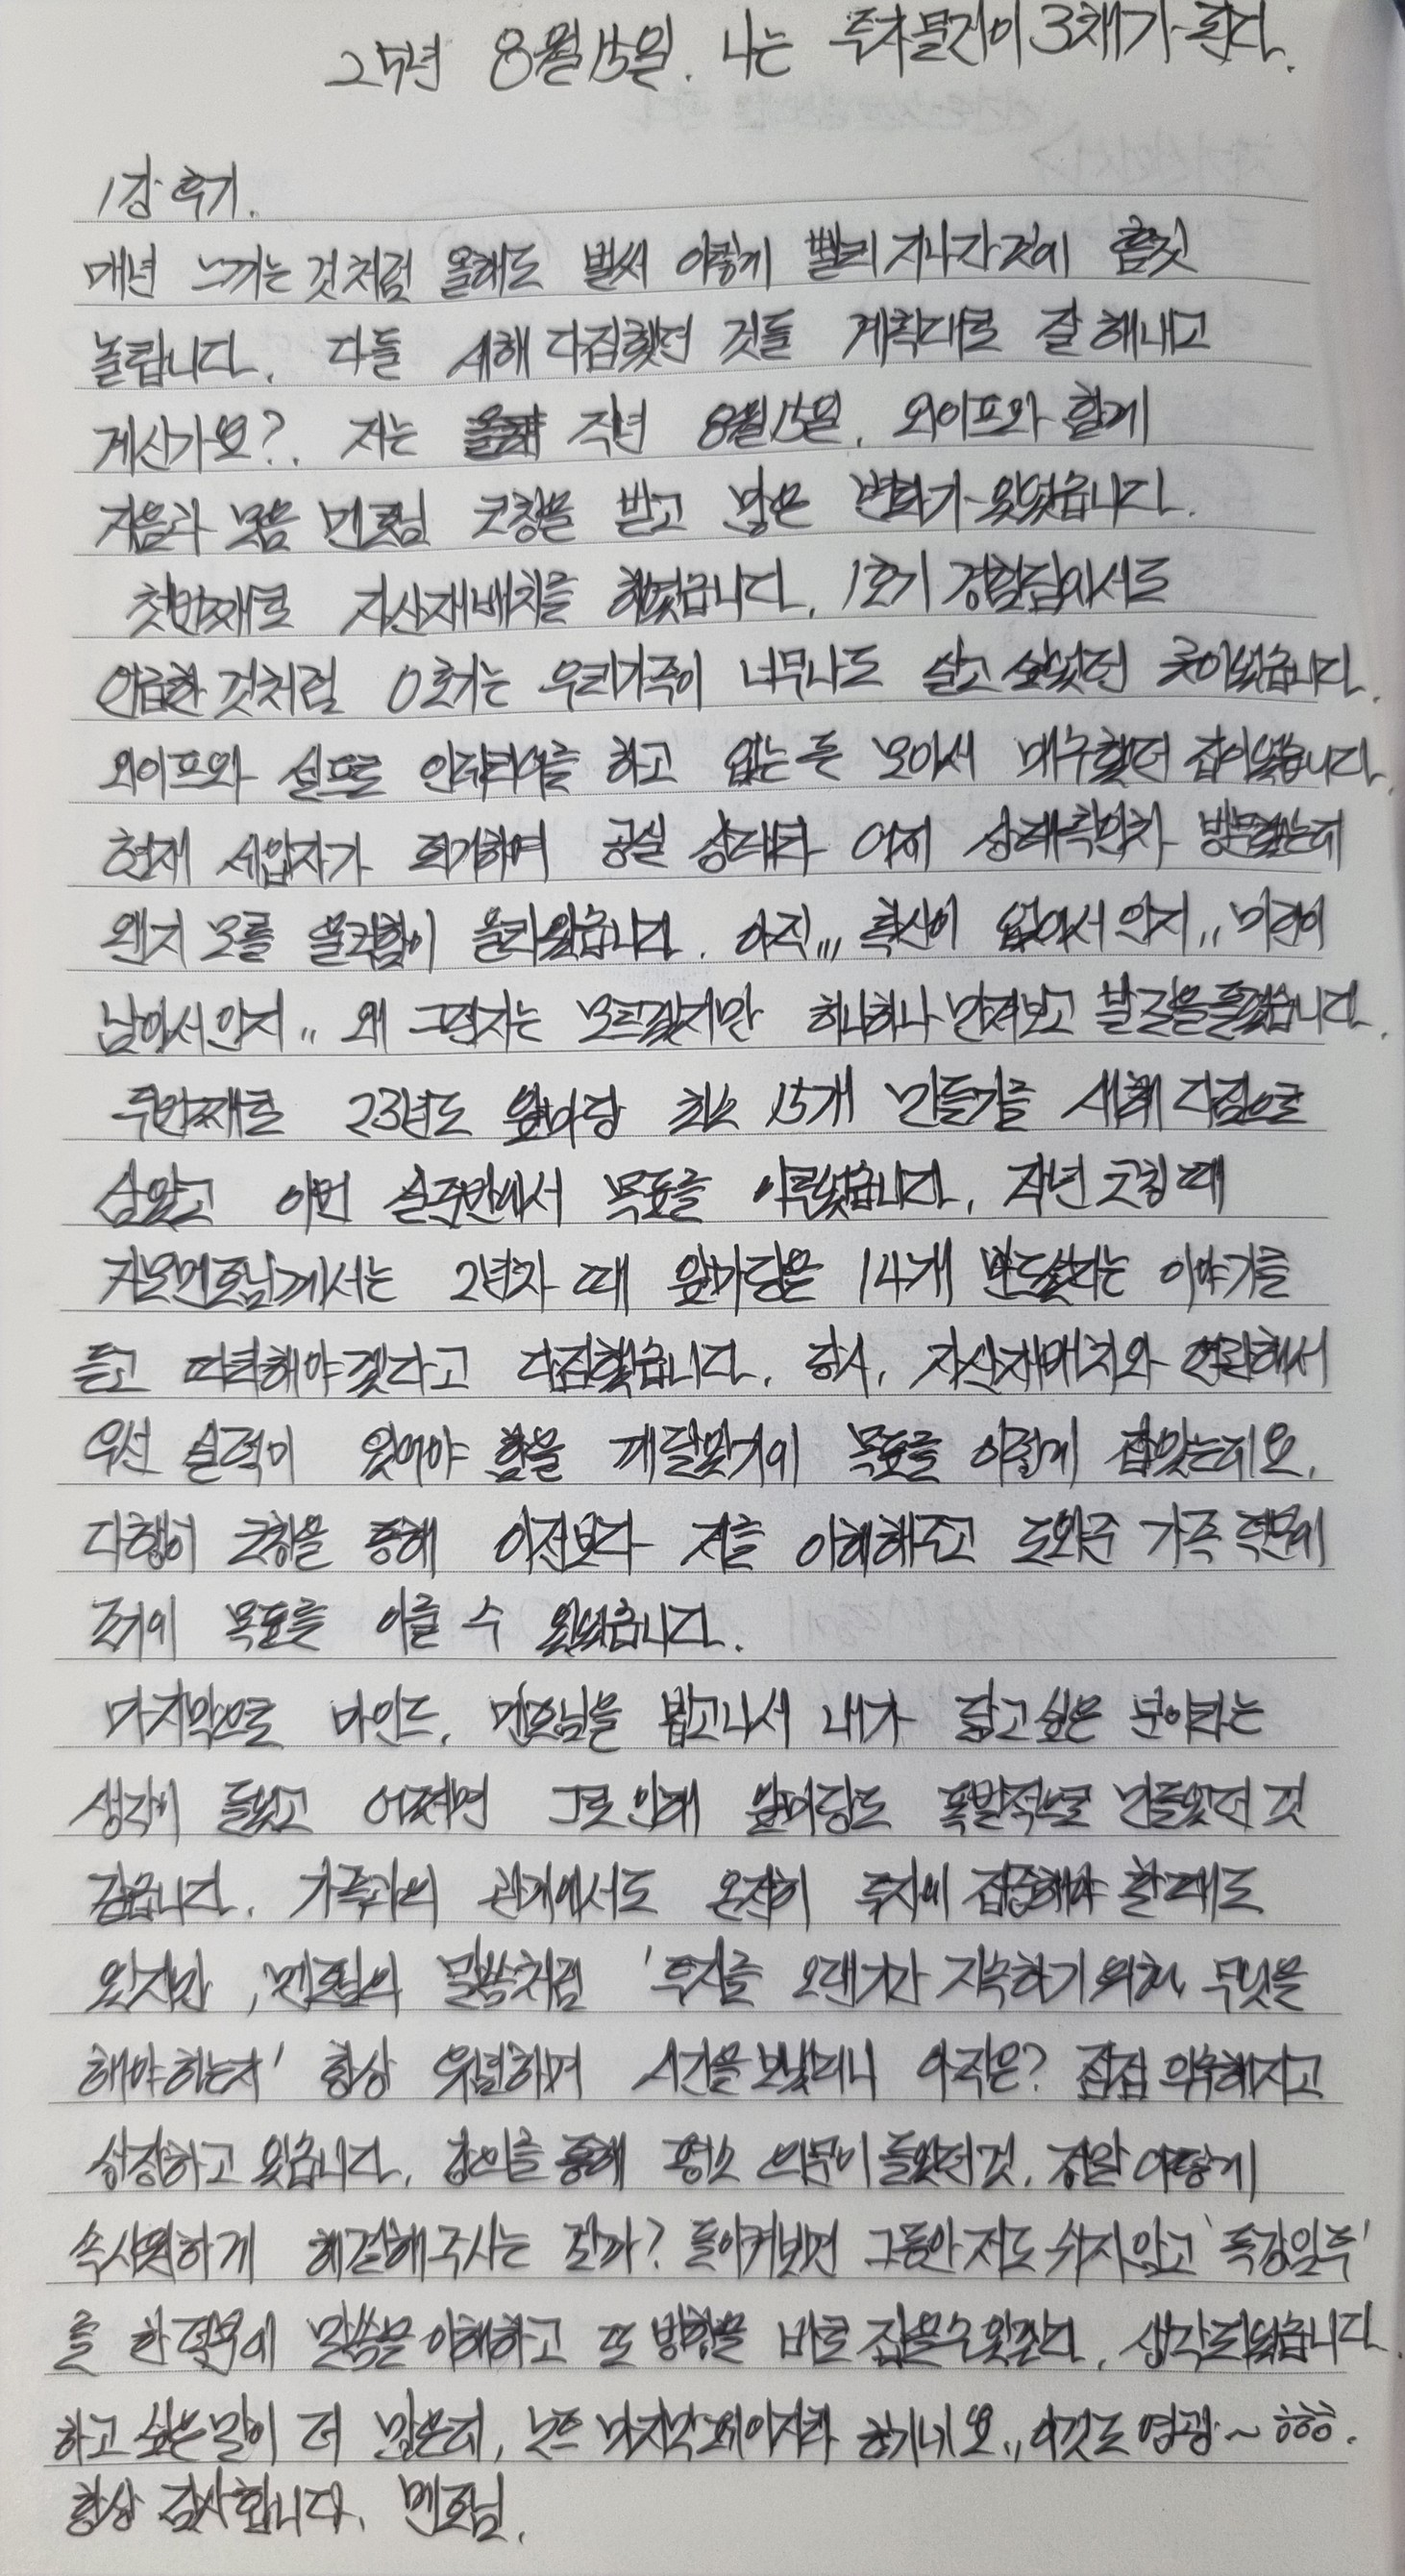 25년 8월 15일. 나는 투자물건이 3채가 된다.
1강 후기.
매년 느끼는 것처럼 올해도 벌써 이렇게 빨리 지나간것에 흠칫
놀랍니다. 다들 새해 다짐했던 것들 계획대로 잘 해내고
계신가요?. 저는 작년 8월 15일, 와이프와 함께
자음과 모음 멘토님 코칭을 받고 많은 변화가 있었습니다.
첫번째로 자산재배치를 했었습니다. 1호기 경험담에서도
언급한 것처럼 0호기는 우리가족이 너무나도 살고 싶었던 곳이었습니다.
와이프와 셀프로 인테리어를 하고 없는 돈 모아서 매수했던 집이었습니다.
현재 세입자가 퇴거하며 공실 상태라 어제 상태확인차 방문했는데
왠지 모를 울컥함이 올라왔습니다. 아직,,, 확신이 없어서 인지,, 미련이
남아서인지,, 왜 그런지는 모르겠지만 하나하나 만져보고 발길을 돌렸습니다.
두번째로 23년도 앞마당 최소 15개 만들기를 새해 다짐으로
삼았고 이번 실준반에서 목표를 이루었습니다. 작년 코칭 때
자모멘토님께서는 2년차 때 앞마당을 14개 만드셨다는 이야기를
듣고 따라해야겠다고 다짐했습니다. 당시, 자산재배치와 연관해서
우선 실력이 있어야 함을 깨달았기에 목표를 이렇게 잡았는데요.
다행히 코칭을 통해 이전보다 저를 이해해주고 도와준 가족 덕분에
저의 목표를 이룰 수 있었습니다.
마지막으로 마인드, 멘토님을 뵙고나서 내가 닮고싶은 분이라는
생각이 들었고 어쩌면 그로인해 앞마당도 폭발적으로 만들었던 것
같습니다. 가족과의 관계에서도 온전히 투자에 집중해야 할때도
왔지만, 멘토님의 말씀처럼 '투자를 오랜기간 지속하기 위해 무엇을
해야하는지' 항상 유념하며 시간을 보냈더니 아직은? 점점 익숙해지고
성장하고 있습니다. 강의를 통해 평소 의문이 들었던것, 정말 어떻게
속시원하게 해결해주시는 걸까? 돌이켜보면 그동안 저도 쉬지않고 '독강임투'
를 한 덕분에 말씀을 이해하고 또 방향을 바로 잡을수있었다. 생각되었습니다.
하고 싶은말이 더 많은데, 노트 마지막페이지라 남기네요,, 이것도 영광~ ㅎㅎㅎ.
항상 감사합니다. 멘토님.